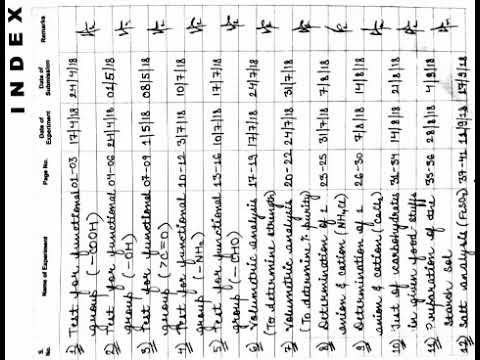 INDEX
S. No. Name of Experiment Page No. Date of Experiment Date of Submission Remarks
1) Test for functional 01-03 17/4/18 24/4/18
group (-COOH)
2) Test for functional 04-06 24/4/18 01/5/18
group (-OH)
3) Test for functional 07-09 1/5/18 08/5/18
group (>C=O)
4) Test for functional 10-12 3/7/18 10/7/18
group (-NH2)
5) Test for functional 13-16 10/7/18 17/7/18
group (-CHO)
6) Volumetric analysis 17-19 17/7/18 24/7/18
(To determine strength)
7) Volumetric analysis 20-22 24/7/18 31/7/18
(To determine % purity)
8) Determination of 1 23-25 31/7/18 7/8/18
anion & cation (NH4Cl)
9) Determination of 1 26-30 7/8/18 14/8/18
anion & cation (CaCl2)
10) Test of carbohydrates 31-34 14/8/18 21/8/18
in given food stuffs
11) Preparation of 35-36 28/8/18 4/9/18
starch sol
12) Salt analysis (FeSO4) 37-41 11/9/18 17/9/18